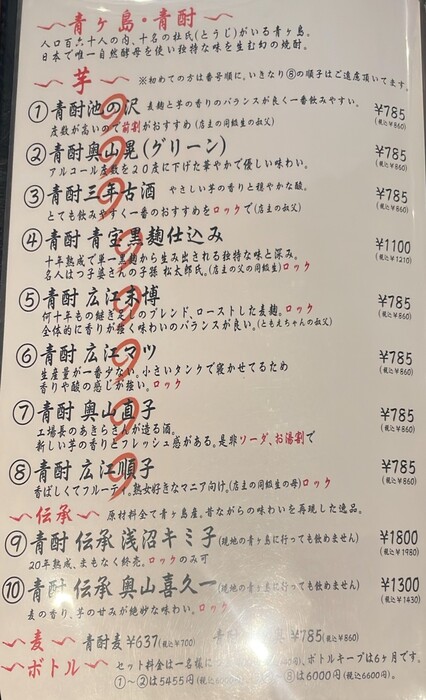 青ヶ島・青酎
人口百六十人の内、十名の杜氏(とうじ)がいる青ヶ島。
日本で唯一自然酵母を使い独特な味を生む幻の焼酎。
芋 ※初めての方は番号順に。いきなり⑧の順子はご遠慮頂いてます。
① 青酎池の沢 麦麹と芋の香りのバランスが良く一番飲みやすい。 ¥785
度数が高いので前割がおすすめ(店主の同級生の叔父) (税込¥860)
② 青酎奥山晃(グリーン) ¥785
アルコール度数を20度に下げた華やかで優しい味わい。 (税込¥860)
③ 青酎三年古酒 やさしい芋の香りと穏やかな酸。 ¥785
とても飲みやすく一番のおすすめをロックで(店主の叔父) (税込¥860)
④ 青酎 青宝黒麹仕込み ¥1100
十年熟成で単一黒麹から生み出される独特な味と深み。 (税込¥1210)
名人はっ子婆さんの子孫 松太郎氏。(店主の父の同級生)ロック
⑤ 青酎 広江末博 ¥785
何十年もの継ぎ足しのブレンド、ローストした麦麹。ロック (税込¥860)
全体的に香りが強く味わいのバランスが良い。(ともえちゃんの叔父)
⑥ 青酎 広江マツ ¥785
生産量が一番少ない。小さいタンクで寝かせてるため (税込¥860)
香りや酸の感じが強い。ロック
⑦ 青酎 奥山直子 ¥785
工場長のあきらさんが造る酒。 (税込¥860)
新しい芋の香りとフレッシュ感がある。是非ソーダ、お湯割で
⑧ 青酎 広江順子 ¥785
香ばしくてフルーティ。熟女好きなマニア向け。(店主の同級生の母)ロック (税込¥860)
伝承 原材料全て青ヶ島産。昔ながらの味わいを再現した逸品。
⑨ 青酎 伝承 浅沼キミ子(現地の青ヶ島に行っても飲めません) ¥1800
20年熟成、まもなく終売。ロックのみ可 (税込¥1980)
⑩ 青酎 伝承 奥山喜久一(現地の青ヶ島に行っても飲めません) ¥1300
麦の香り、芋の甘みが絶妙な味わい。ロック (税込¥1430)
麦 青酎麦¥637(税込¥700) ¥785(税込¥860)
ボトル セット料金は一名様に ボトルキープは6ヶ月です。
①〜②は5455円 ⑧は6000円(税込6600円)。